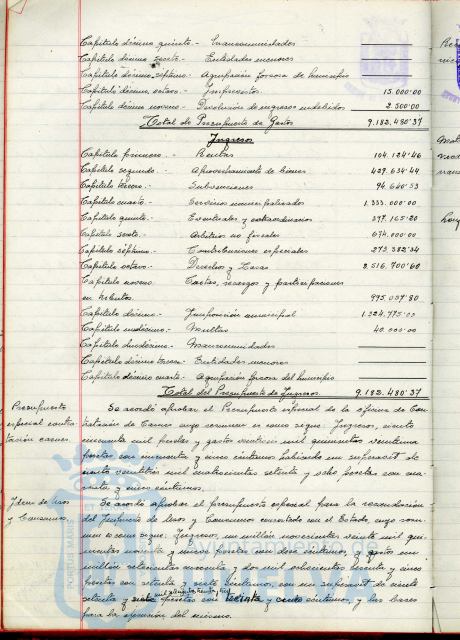 Capítulo décimo quinto.- Mancomunidades
Capítulo décimo sexto.- Entidades menores
Capítulo décimo séptimo.- Agrupación forzosa de municipio
Capítulo décimo octavo.- Imprevistos 15.000'00
Capítulo décimo noveno.- Devolución de ingresos indebidos 2.500'00
Total del Presupuesto de Gastos 9.182.480'37
Ingresos
Capítulo primero.- Rentas 104.124'46
Capítulo segundo.- Aprovechamiento de bienes
Capítulo tercero.- Subvenciones
Capítulo cuarto.- Servicios municipalizados 1.333.000'00
Capítulo quinto.- Eventuales y extraordinarios 377.165'20
Capítulo sexto.- Arbitrios no fiscales 674.000'00
Capítulo séptimo.- Contribuciones especiales 273.382'34
Capítulo octavo.- Derechos y Tasas 2.516.700'60
Capítulo noveno Cuotas, recargos y participaciones
en tributos 975.037'80
Capítulo décimo.- Imposición municipal 1.324.775'00
Capítulo undécimo.- Multas 40.000'00
Capítulo duodécimo.- Mancomunidades
Capítulo décimo tercero.- Entidades menores
Capítulo décimo cuarto.- Agrupación forzosa del municipio
Total del Presupuesto de Ingresos 9.182.480'37
Presupuesto
especial contra
tación carnes.
Se acordó aprobar el Presupuesto especial de la oficina de Con
tratación de Carnes cuyo resumen es como sigue: Ingresos, ciento
cincuenta mil pesetas y gastos veintiseis mil quinientas veintiuna
pesetas con cincuenta y cinco céntimos habiendo un superavit de
ciento veintitrés mil cuatrocientas setenta y ocho pesetas con cua
renta y cinco céntimos.
Idem de Usos
y Consumos.
Se acordó aprobar el presupuesto especial para la recaudación
del Impuesto de Usos y Consumos concertado con el Estado cuyo resu
men es como sigue: Ingresos, un millón novecientas veinte mil qui
nientas cuarenta y nueve pesetas con doce céntimos, y gastos un
millón setecientas cincuenta y dos mil ochocientas setenta y cinco
pesetas con setenta y siete céntimos, con un superavit de ciento
setenta y mil pesetas con treinta y cinco céntimos, y las bases
para la ejecución del mismo.